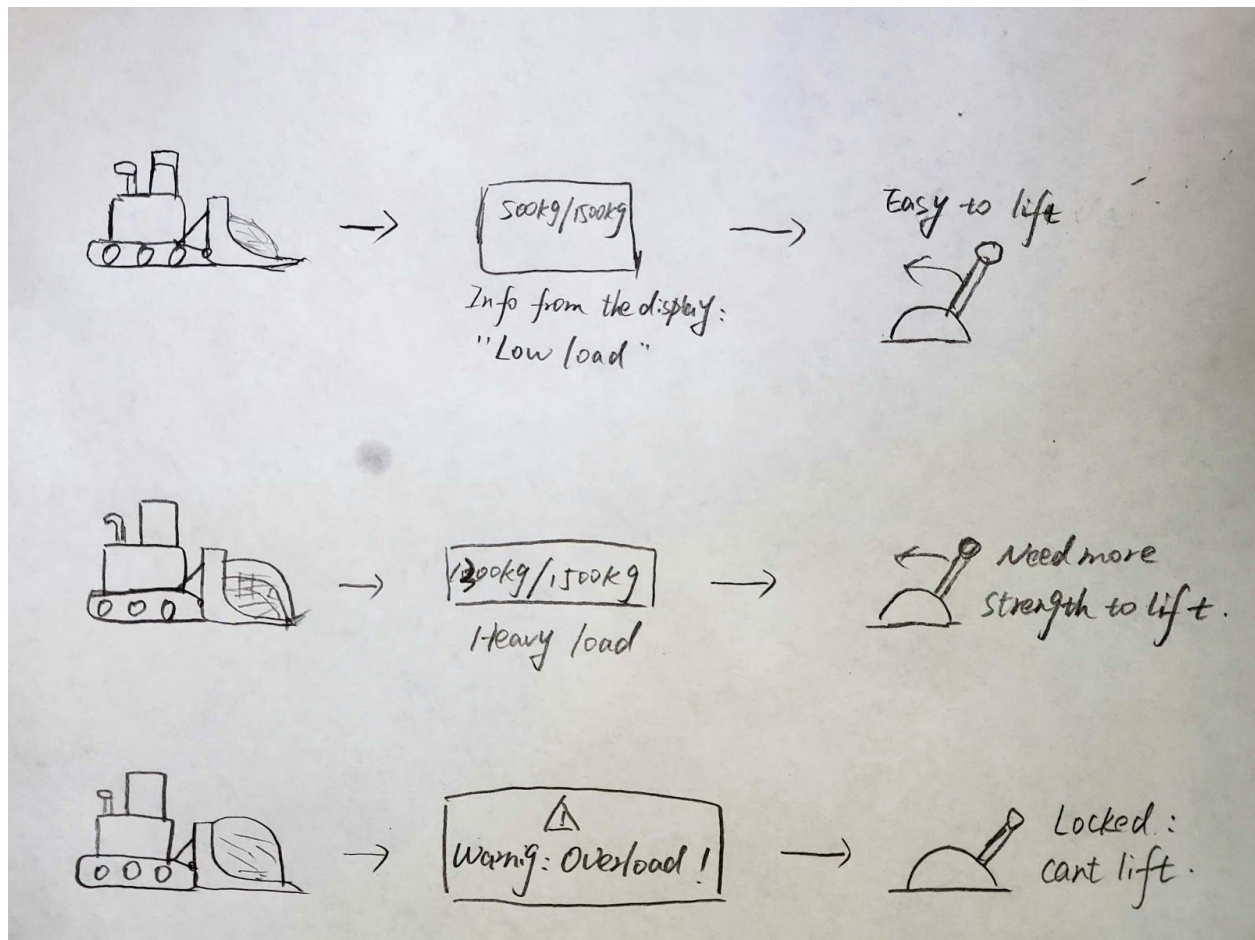 500kg/1500kg
Easy to lift
Info from the display:
"Low load"
1300kg/1500kg
Need more
strength to lift.
Heavy load
Warnig: Overload!
Locked:
cant lift.